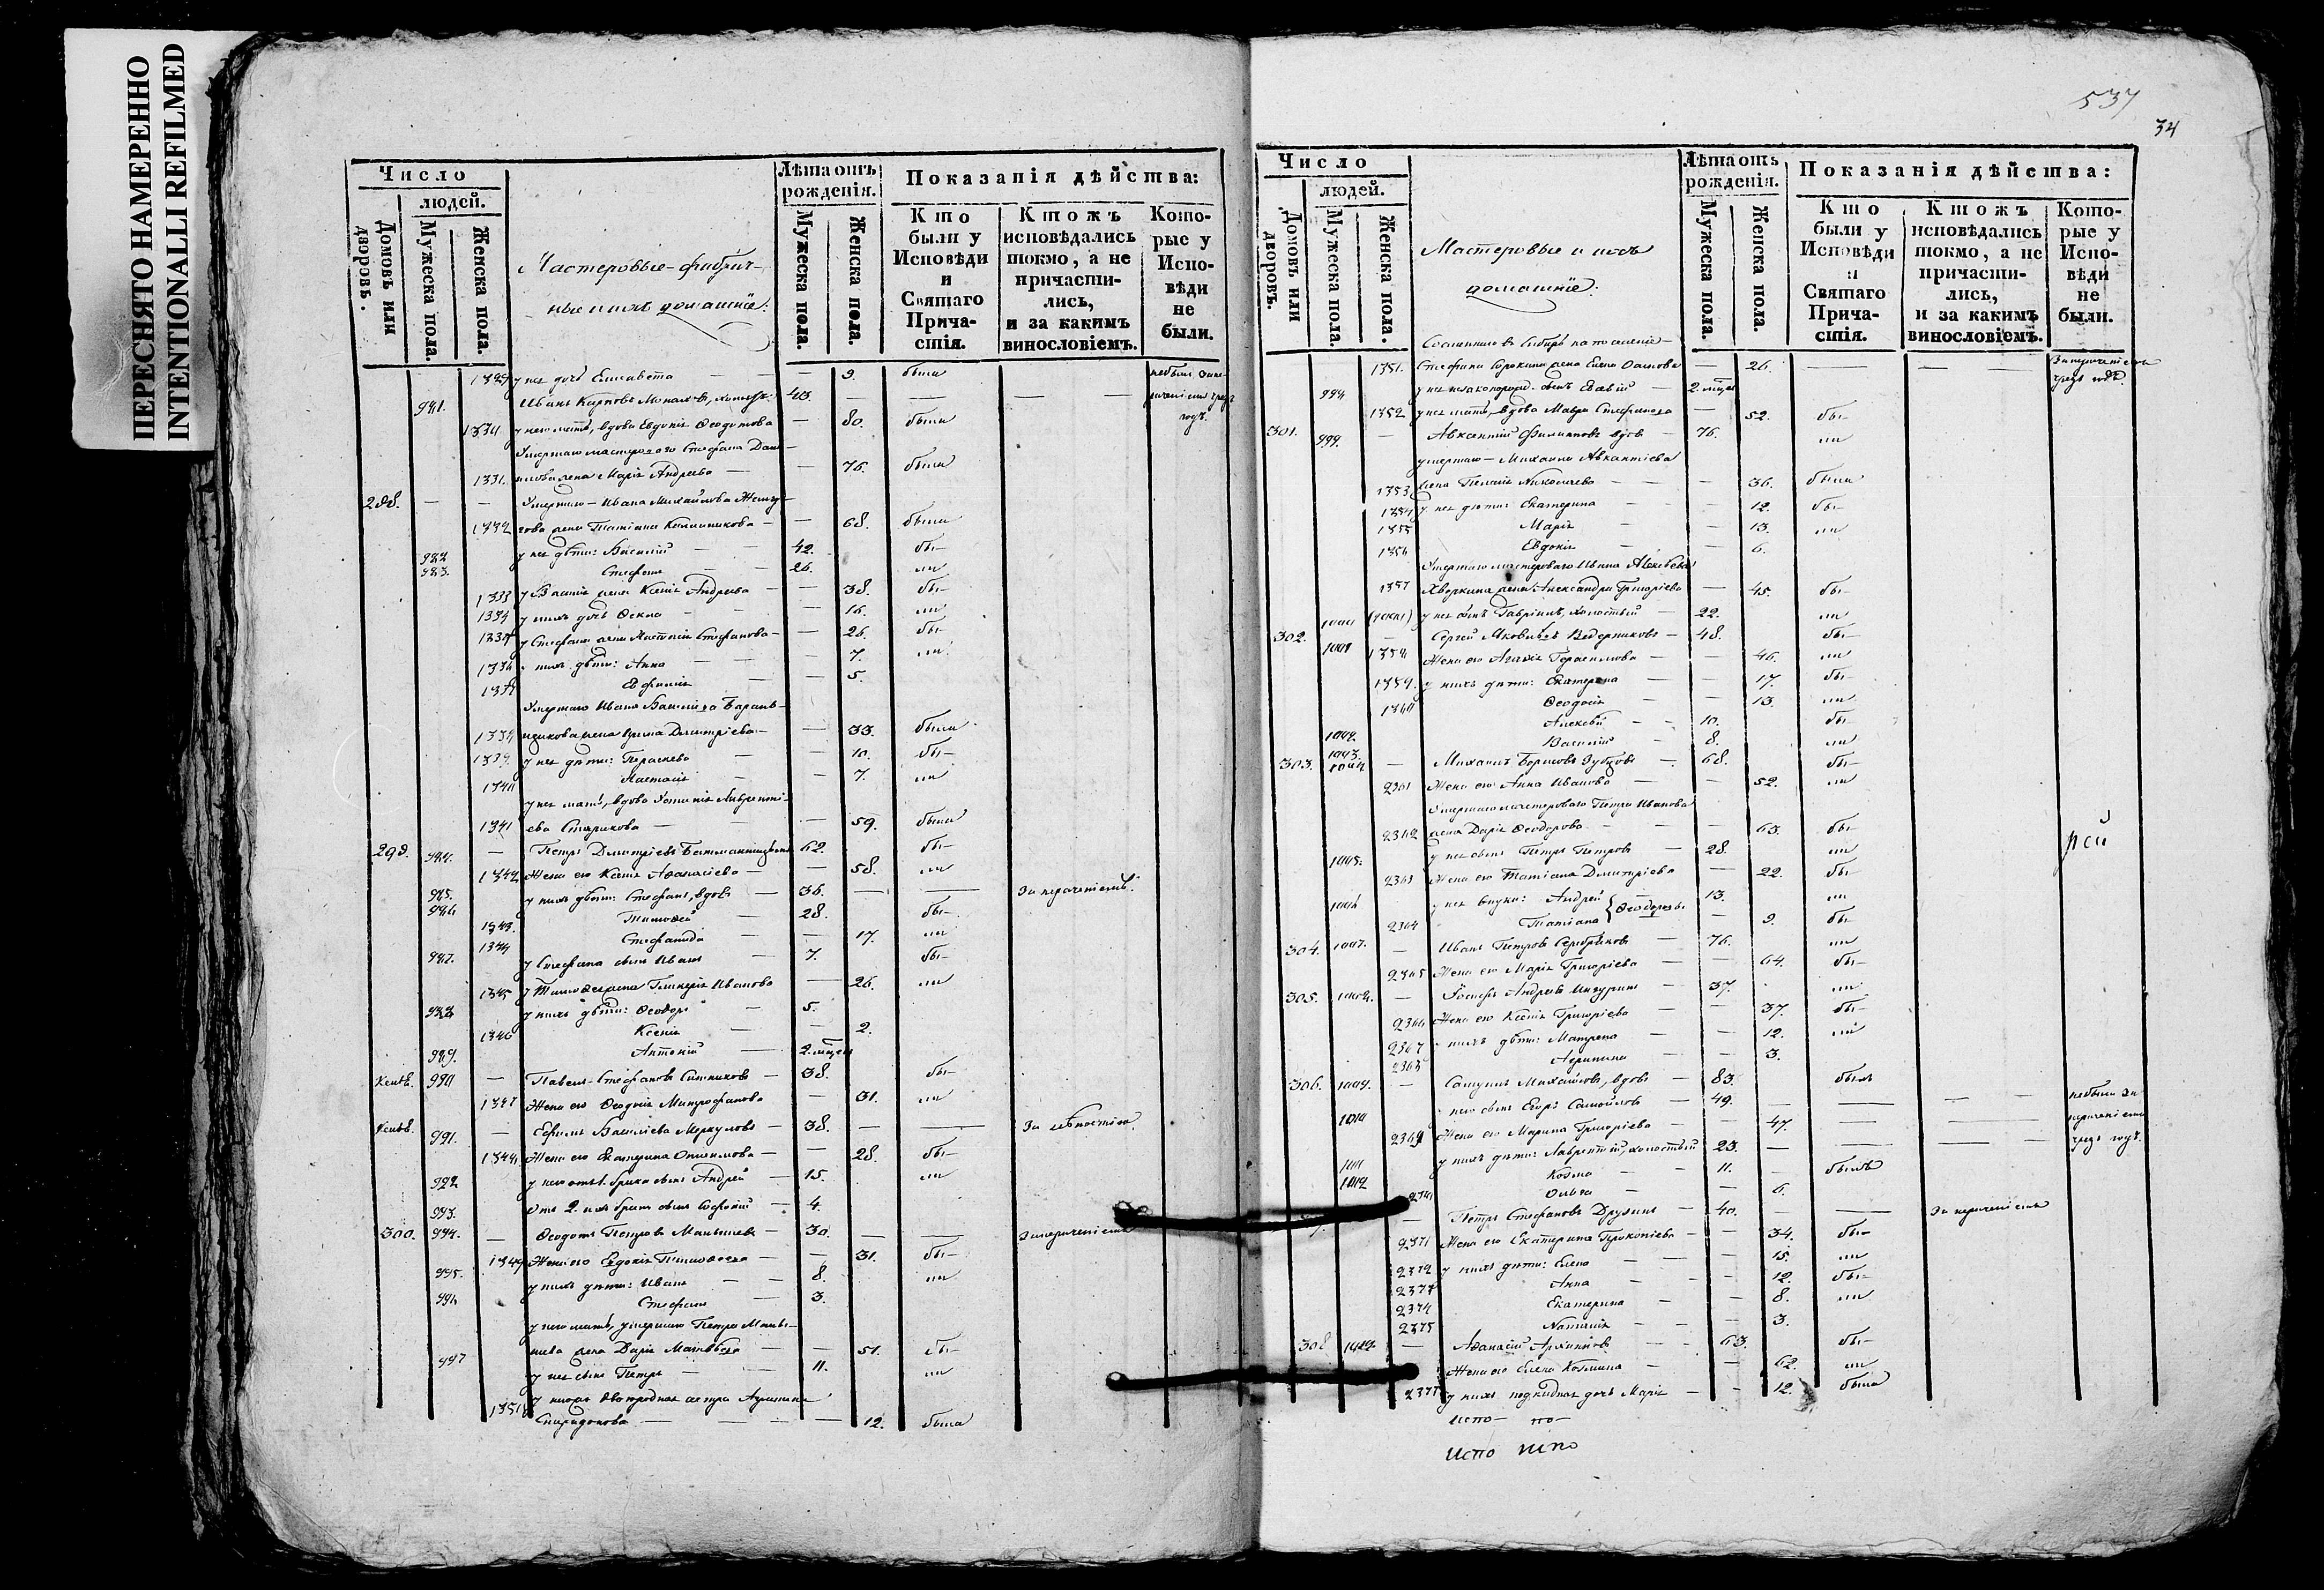 ПЕРЕСНЯТО НАМЕРЕННО
INTENTIONALLI REFILMED
Число
людей.
Домовъ или дворовъ.
Мужеска пола.
Женска пола.
Мастеровые-фабрич-
ные и ихъ домашніе:
Лѣта отъ рожденія.
Мужеска пола.
Женска пола.
Показанія дѣйства:
Кто были у Исповѣди и Святаго Прича-стія.
Ктожъ исповѣдались токмо, а не причасти-лись, и за какимъ винословіемъ.
Кото-рые у Испо-вѣди не были.
1329 у нее дочь Елисавета — — 9. была
981. Иванъ Карповъ 43. — — —
1330 у него мать, вдова Евдокія Ѳеодотова — 80. была
Умершаго мастероваго Стефана Дани-
1331. лова жена Марія Андреева — — 76. была
298. — — Умершаго — Ивана Михайлова
1332 жена Татіана — — 68. была
982 у нее дѣти: Василій — — 42. бы-
983. Стефанъ — — 26. ли
1333 у Василія жена Ксенія Андреева — — 38. бы-
1334 у нихъ дочь Ѳекла — — — 16. ли
1335 у Стефана жена Настасія Стефанова — — 26. бы-
1336 у нихъ дѣти: Анна — — — 7. ли
1337 Евфимія — — 5.
Умершаго Ивана Васильева
1338 жена Ирина Димитріева — — 33. была
1339. у нее дѣти: Параскева — — 10. бы-
1340 Настасія — — 7. ли
у нее мать, вдова Лавренті-
1341 ева Старикова — — — 59. была
299. 984. — Петръ Димитріевъ 62. бы-
1342 Жена его Ксенія Аѳанасіева — — 58. ли
985. у нихъ дѣти: Стефанъ, вдовъ — 36. — — За нераченіемъ.
986 Тимоѳей — 28. бы-
1343. Стефанида — — 17. ли
987. у Стефана сынъ Иванъ — 7. бы-
1345 у Тимоѳея жена Гликерія Иванова — 26. ли
988 у нихъ дѣти: Ѳеодоръ — 5.
1346 Ксенія — — 2.
989. Антоній — 2. мѣся
990 — Павелъ Стефановъ Ситниковъ — 38. бы-
1347 Жена его Ѳеодосія Митрофанова — 31. ли
991. — Ефимъ Васильевъ Меркуловъ — 38. — —
1348 Жена его Екатерина — — 28. бы-
992 у него отъ 1. брата сынъ Андрей — 15. ли
993. Отъ 2. брата сынъ — 4.
300. 994. — Ѳеодотъ Петровъ Манышевъ — 30. — — За нераченіемъ
1349 Жена его Евдокія Тимоѳеева — — 31. бы-
995. у нихъ дѣти: Иванъ — — 8. ли
996 Стефанъ — 3.
у него мать, умершаго Петра Маны-
шева жена Дарія Матвѣева — — 51. бы-
997 у нее сынъ Петръ — 11. ли
у нихъ двоюродная сестра Агрипина
1350 Спиридонова — — — — — 12. была
537
34
Число
людей.
Домовъ или дворовъ.
Мужеска пола.
Женска пола.
Мастеровые и ихъ
домашніе:
Лѣта отъ рожденія.
Мужеска пола.
Женска пола.
Показанія дѣйства:
Кто были у Исповѣди и Святаго Прича-стія.
Ктожъ исповѣдались токмо, а не причасти-лись, и за какимъ винословіемъ.
Кото-рые у Испо-вѣди не были.
Сосланнаго въ Сибирь на поселеніе
1351. Стефана Сорокина жена Елена — 26. — — — За нераченіемъ
998 у нее незаконорожд. сынъ — 2. мѣся чрезъ годъ.
1352 у нее мать, вдова Мавра Стефанова — 52. бы-
301. 999. — Авксентій Филиповъ вдовъ — 76. ли
умершаго — Михаила Авксентіева
1353 жена Пелагія Николаева — — — 36. была
1354 у нее дѣти: Екатерина — — 12. бы-
1355 Марія — — 13. ли
1356 Евдокія — — 6.
Умершаго мастероваго Ивана Алексѣева
1357 жена Александра Григоріева — 45. бы-
1000 у нее сынъ Гавріилъ, холостый — 22. ли
302. — Сергей Яковлевъ Ведерниковъ — 48. бы-
1001 1358 Жена его Агафія Герасимова — — 46. ли
1359. у нихъ дѣти: Екатерина — — 17. бы-
1360 Ѳеодосія — — 13. ли
Алексѣй — — 10. бы-
1002. Василій — 8. ли
303. 1003. 1004 — Михаилъ Борисовъ Зубковъ — 68. бы-
2361 Жена его Анна Иванова — — 52. ли
Умершаго мастероваго Петра Иванова
2362 жена Дарія Ѳеодорова — — — 63. бы-
1005. у нее сынъ Петръ Петровъ — 28. ли
рсй
2363 Жена его Татіана Димитріева — 22. бы-
1006 у нее внуки: Андрей — 13. ли
2364 Татіана — 9. бы-
304. 1007. — Иванъ Петровъ Серебряковъ — 76. ли
2365 Жена его Марія Григоріева — — 64. бы-
305. 1008. — Іосифъ Андреевъ — 37. ли
2366 Жена его Ксенія Григоріева — — 37. бы-
2367 у нихъ дѣти: Матрена — — 12. ли
2368 Агрипина — — 3.
306. 1009. — Самуилъ Михайловъ, вдовъ — 83. былъ
1010 у него сынъ Егоръ Самойловъ — 49. — — — не были за
2369 Жена его Марина Григоріева — — 47. — — нераченіемъ
1011 у нихъ дѣти: Лаврентій, холостый 23. — — — чрезъ годъ.
1012 Козма — 11. — былъ
2370 Ольга — — 6.
— Петръ Стефановъ Дружинъ — 40. — — За нераченіемъ
2371 Жена его Екатерина Прокопіева — — 34. бы-
2372 у нихъ дѣти: Елена — — 15. ли
2373 Анна — — 12. бы-
2374 Екатерина — — 8. ли
2375 Наталія — — — 3.
308 — Аѳанасій Архиповъ — — 63. бы-
Жена его Елена Козмина — — 62. ли
2377 у нихъ подкидная дочь Марія — — 12. была